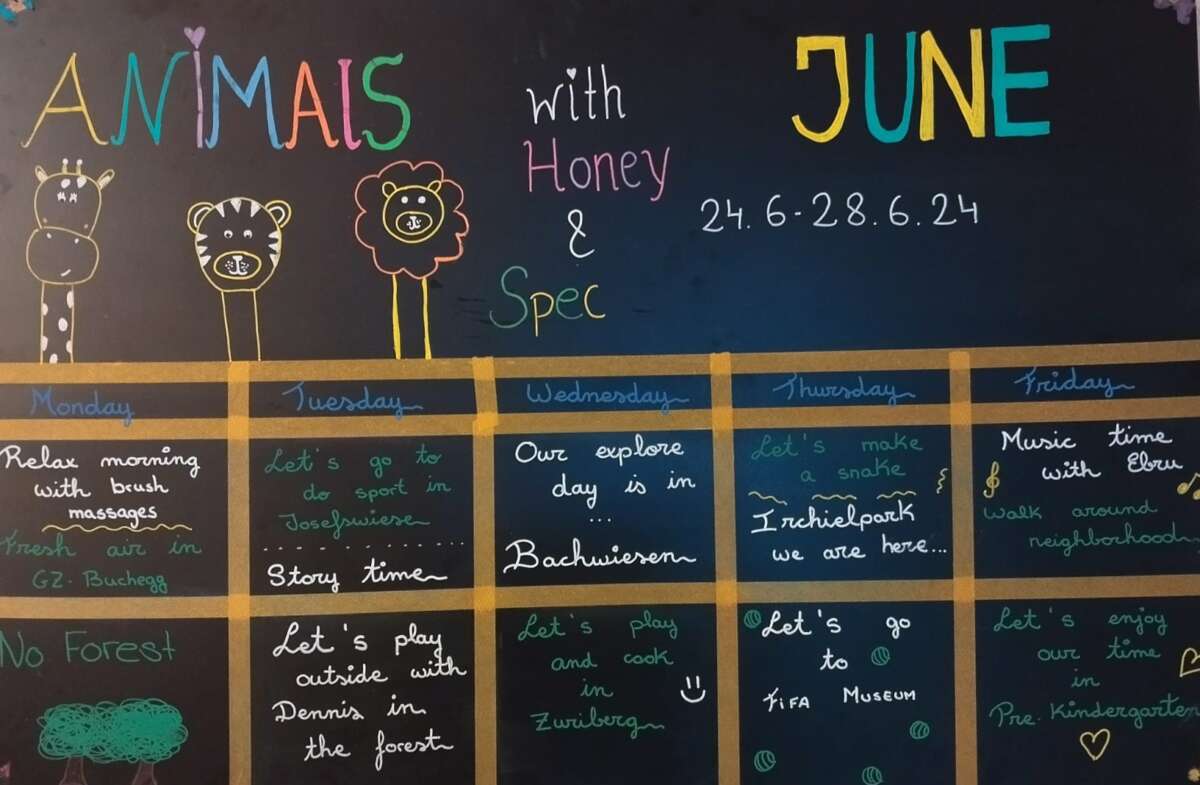 ANIMAlS
with
Honey
&
Spec
JUNE
24.6-28.6.24
Monday
Tuesday
Wednesday
Thursday
Friday
Relax morning
with brush
massages
Fresh air in
GZ. Buchegg
Let's go to
do sport in
Josefswiese
Story time
Our explore
day is in
...
Bachwiesen
Let's make
a snake
Irchielpark
we are here...
Music time
with Ebru
Walk around
neighborhood
No Forest
Let's play
outside with
Dennis in
the forest
Let's play
and cook
in
Zuriberg
Let's go
to
FiFA MUSEUM
Let's enjoy
our time
in
Pre. Kindergarten